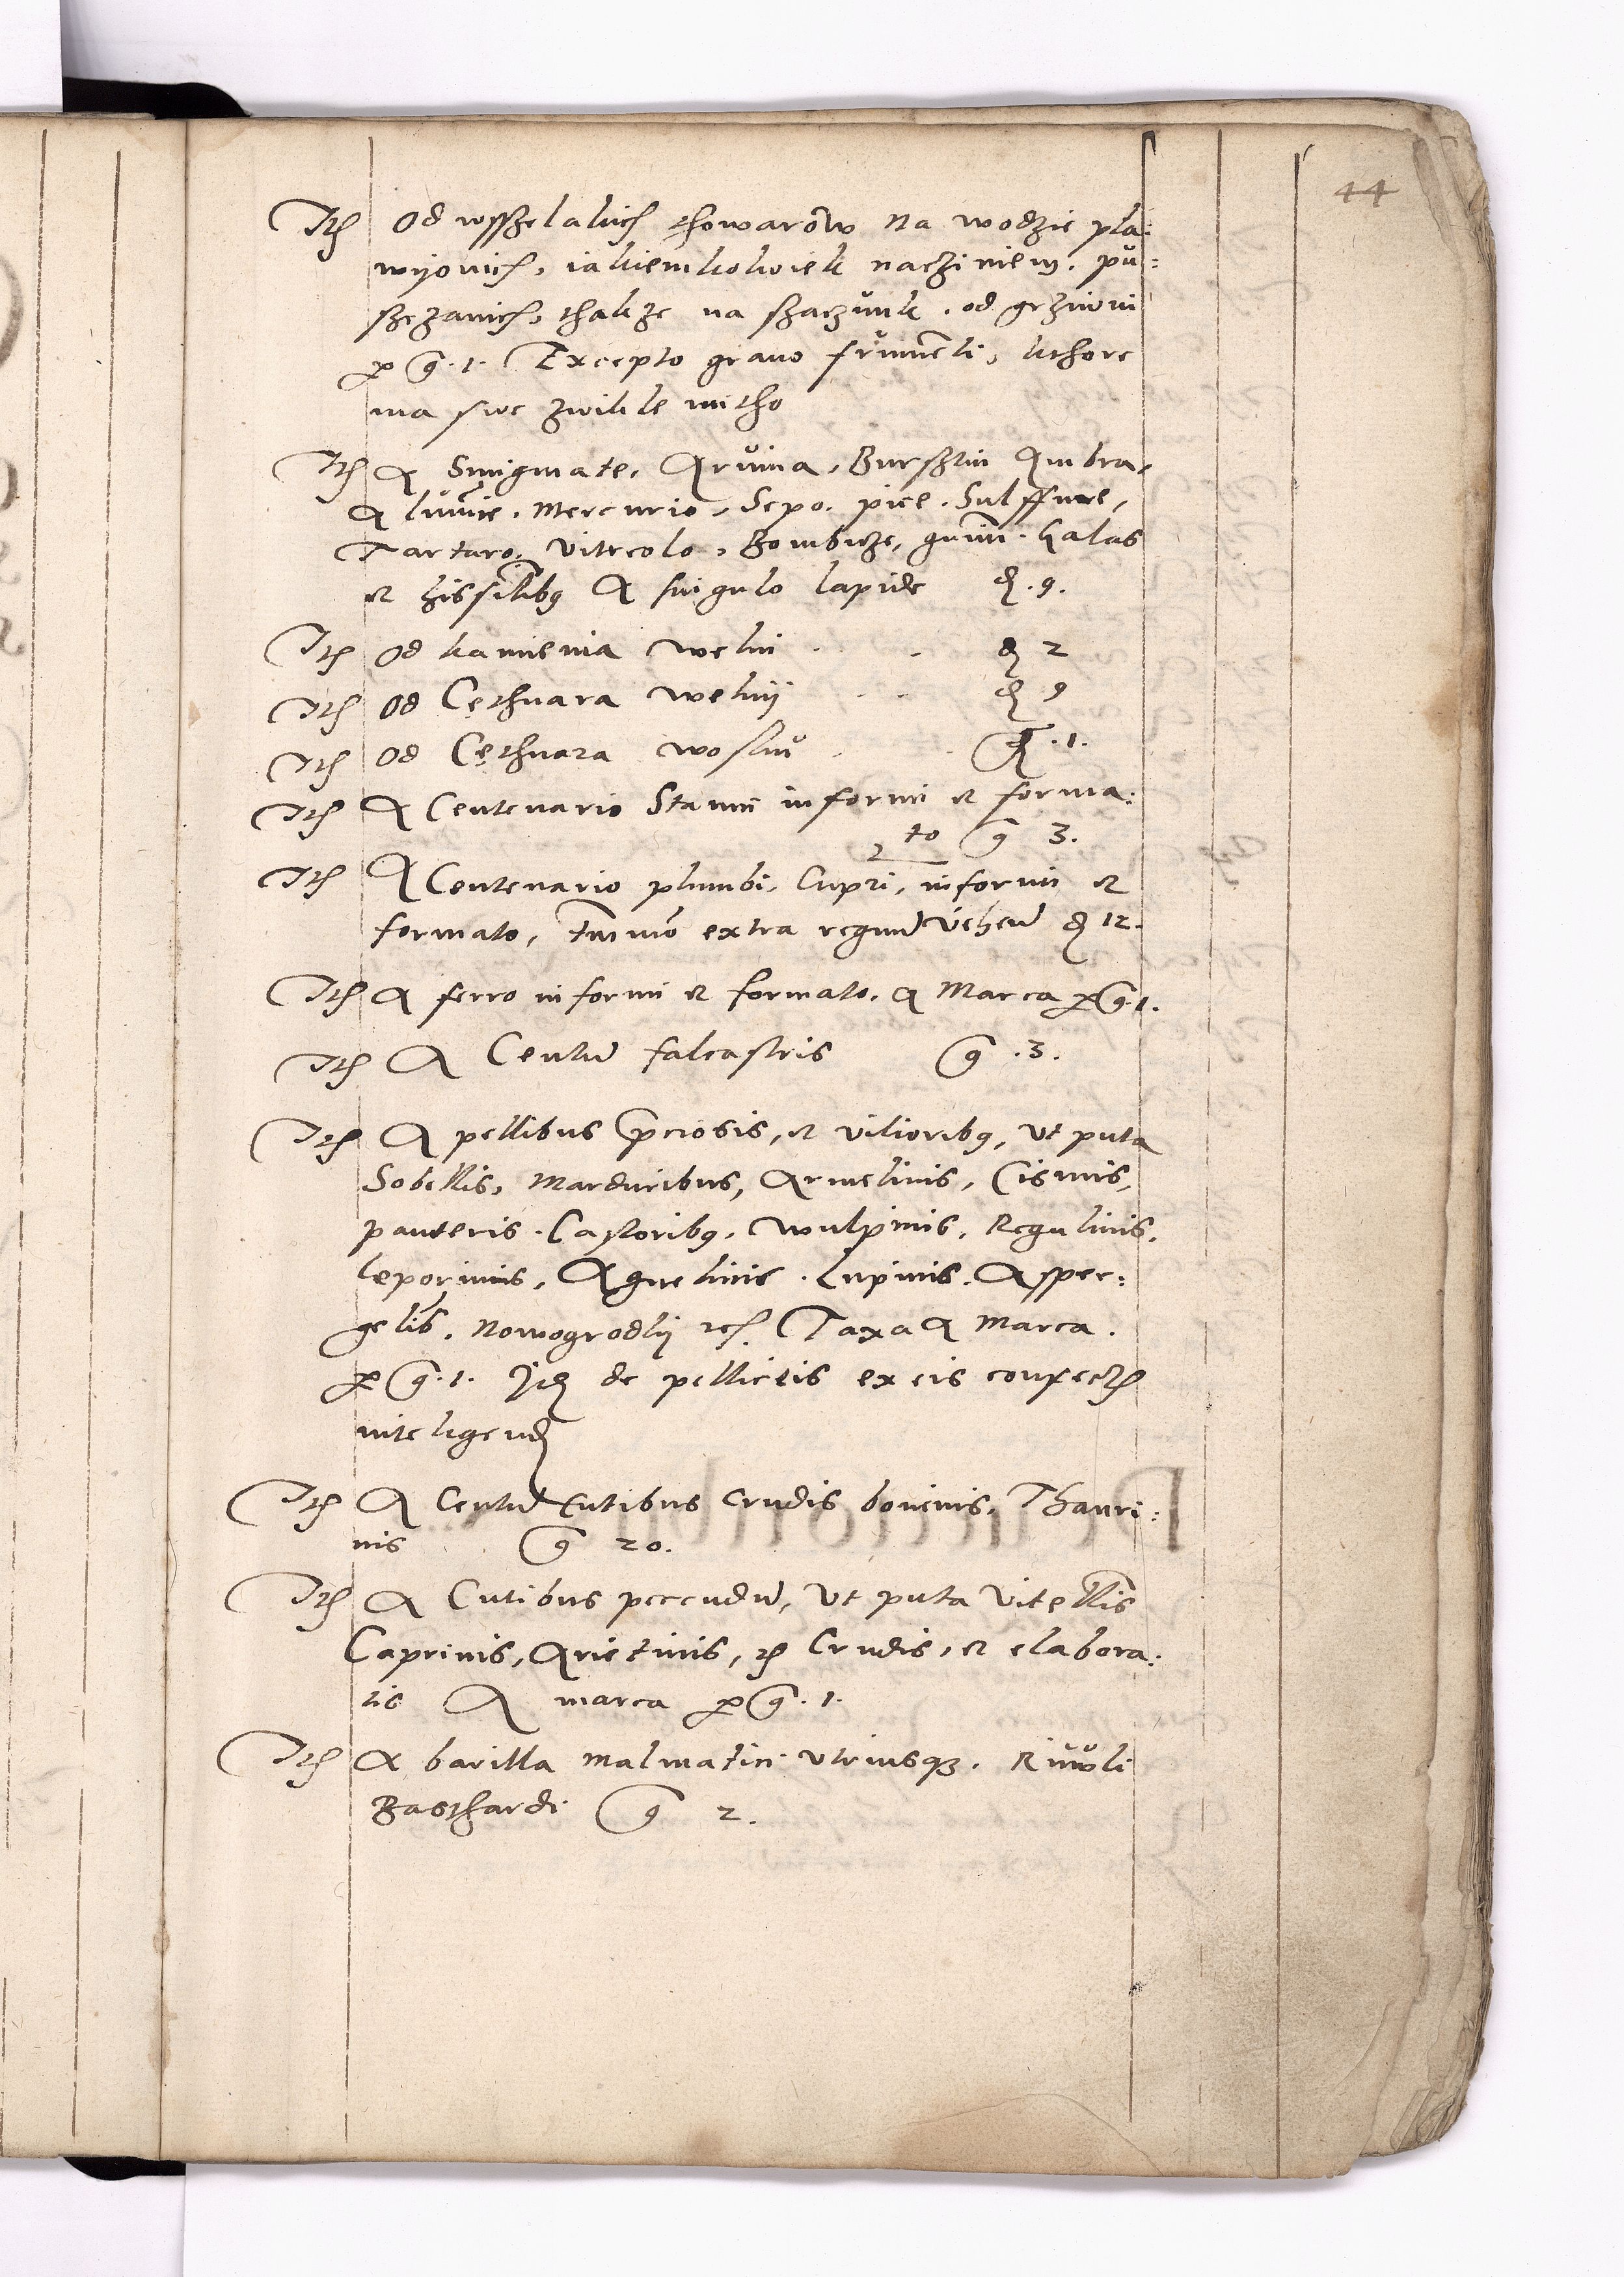 44
Ith Od wsszelakich thowarow Na wodzie pla:
wyonich, iakiemkolwiek nacziniem, pu:
szczanich, thakze na szaczunk. od grziwni
p g. 1. Excepto grano frumenti, kthore
ma swe zwikle mitho
Ith A Smigmate, Arvina, Burszlin Ambra,
Alumie. Mercurio, Sepo. pice. Sulffure,
Tartaro. Vitreolo, Bombicze, gumi. Galas
et hissilibus A singulo lapide d. 9.
Ith Od kamienia welni d 2
Ith Od Cethnara welnij d 9
Ith Od Cethnara wosku g. 1.
Ith A Centenario Stanni informi et forma:
to g 3.
Ith A Centenario plumbi, Cupri, informi et
formato, tmmo extra regnu vehen d 12.
Ith A ferro informi et formato. a Marca p g. 1.
Ith A Centu falcastris g. 3.
Ith A pellibus pciosis, et vilioribus, ut puta
Sobellis, Marduribus, Armelinis, Cismis,
panteris. Castoribus, Wulpinis, Regulinis,
leporinis, Agnelinis. Lupinis. Asper:
gelis. Nowogrodky etc. Taxa a Marca.
p g. 1. Id de pelliceis ex eis confect
inteligend
Ith A Centu Cutibus crudis bovinis, Thauri:
nis g 20.
Ith A Cutibus pecudu, Ut puta Vitellis
Caprinis, Arietinis, et Crudis, et elabora:
tis A marca p g. 1.
Ith A barilla Malmatici utriusque. Riwuli
Basthardi g 2.